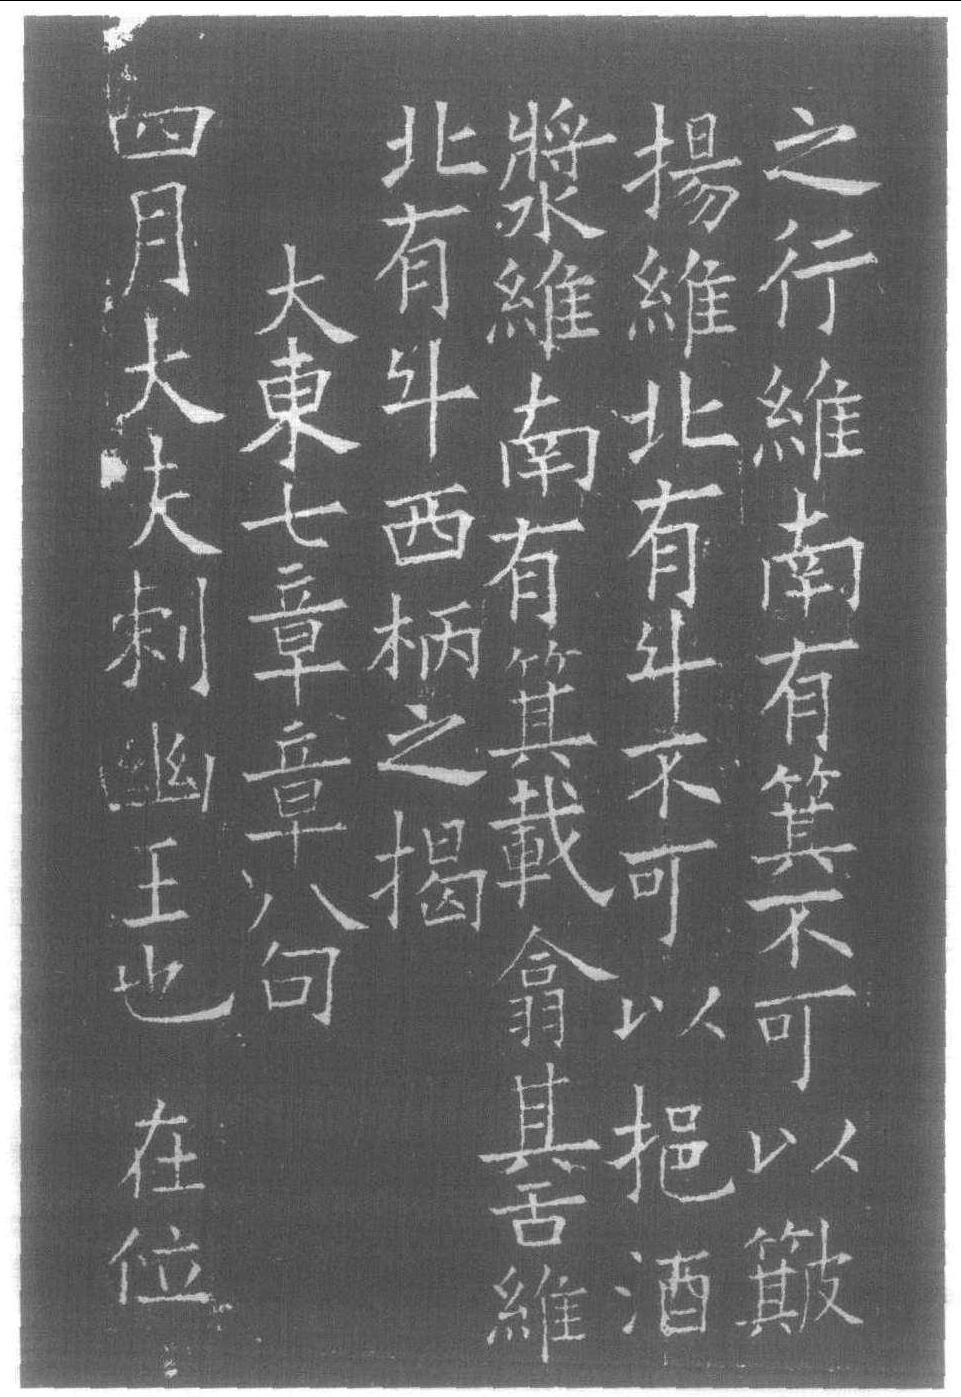 之行維南有箕不可以簸
揚維北有斗不可以挹酒
漿維南有箕載翕其舌維
北有斗西柄之揭
大東七章章八句
四月大夫刺幽王也 在位